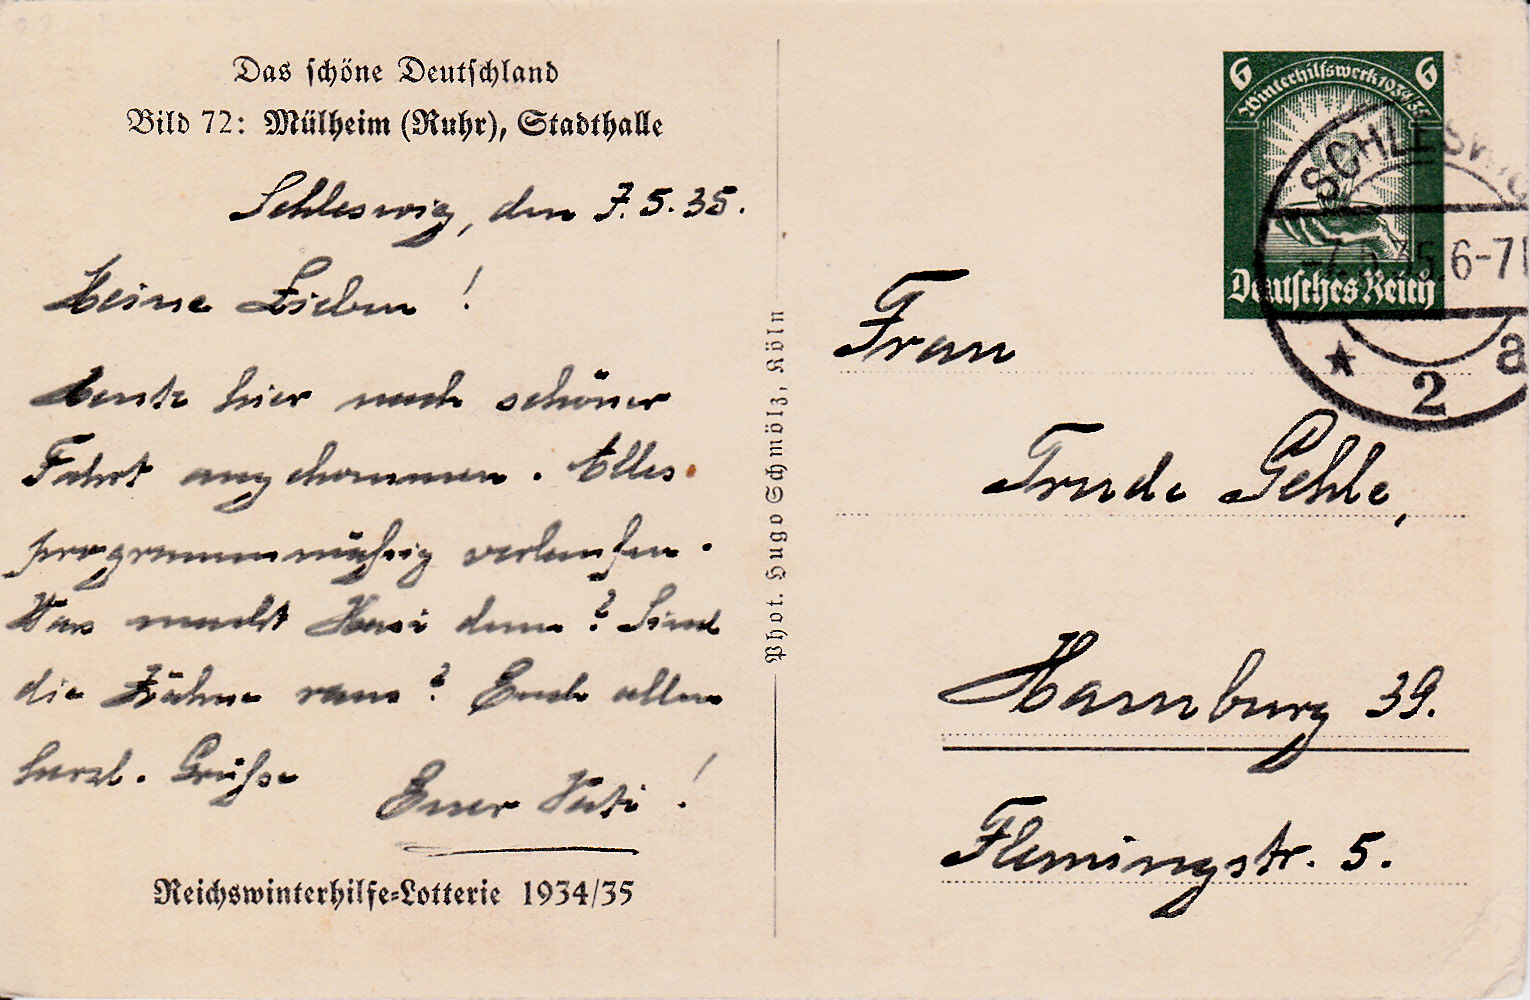 Das schöne Deutschland
Bild 72: Mülheim (Ruhr), Stadthalle
Schleswig, den 7.5.35.
Meine Lieben!
Heute hier nach schöner
Fahrt angekommen. Alles
programmmäßig verlaufen.
Was macht Hasi denn? Sind
die Zähne raus? Euch allen
herzl. Grüße
Euer Vati!
Reichswinterhilfe-Lotterie 1934/35
Phot. Hugo Schmölz, Köln
6 6
Winterhilfswerk 1934/35
Deutsches Reich
SCHLESWIG
-7.5.35.6-7
* 2 a
Frau
Trude Gehle,
Hamburg 39.
Flemingstr. 5.